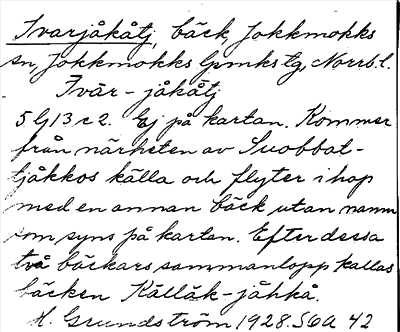 Tvarjåkåtj, bäck, Jokkmokks
sn, Jokkmokks lpmks tg, Norrb. l.
Tvär-jåkåtj
5 G 13 c 2. Ej på kartan. Kommer
från närheten av Suobbat-
tjåkkos källa och flyter ihop
med en annan bäck utan namn
som syns på kartan. Efter dessa
två bäckars sammanlopp kallas
bäcken Källåk-jåhkå.
H. Grundström, 1928. SOA 42